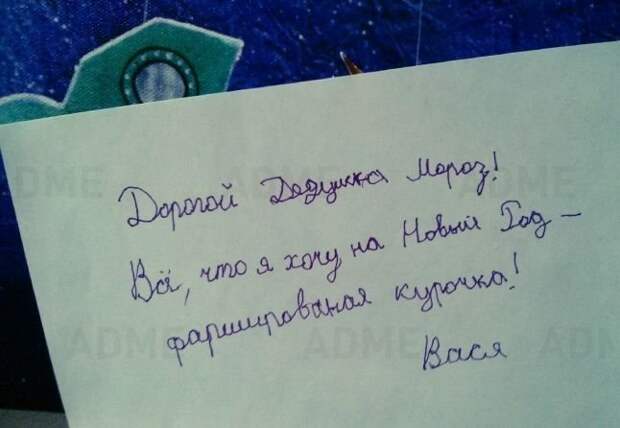 Дорогой Дедушка Мороз!
Всё, что я хочу на Новый Год –
фаршированая курочка!
Вася
ADME ADME ADME
ADME ADME ADME